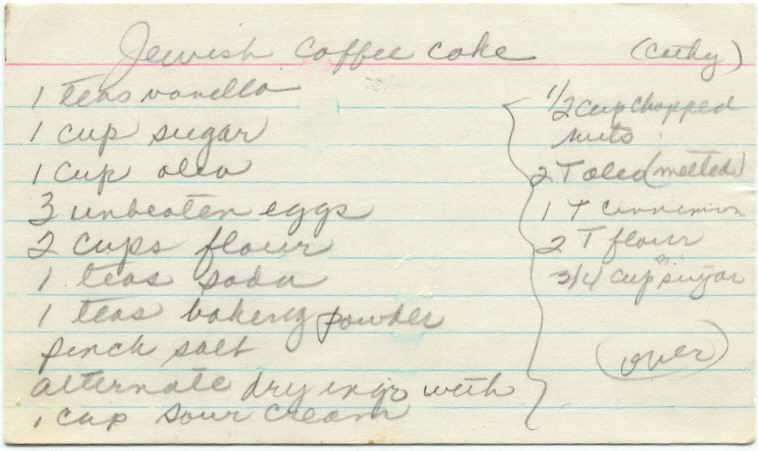 Jewish Coffee Cake (Cathy)
1 teas vanilla
1 cup sugar
1 cup oleo
3 unbeaten eggs
2 cups flour
1 teas soda
1 teas baking powder
pinch salt
alternate dry ingr with
1 cup sour cream
1/2 cup chopped
nuts
2 T oleo (melted)
1 T cinnamon
2 T flour
3/4 cup sugar
over